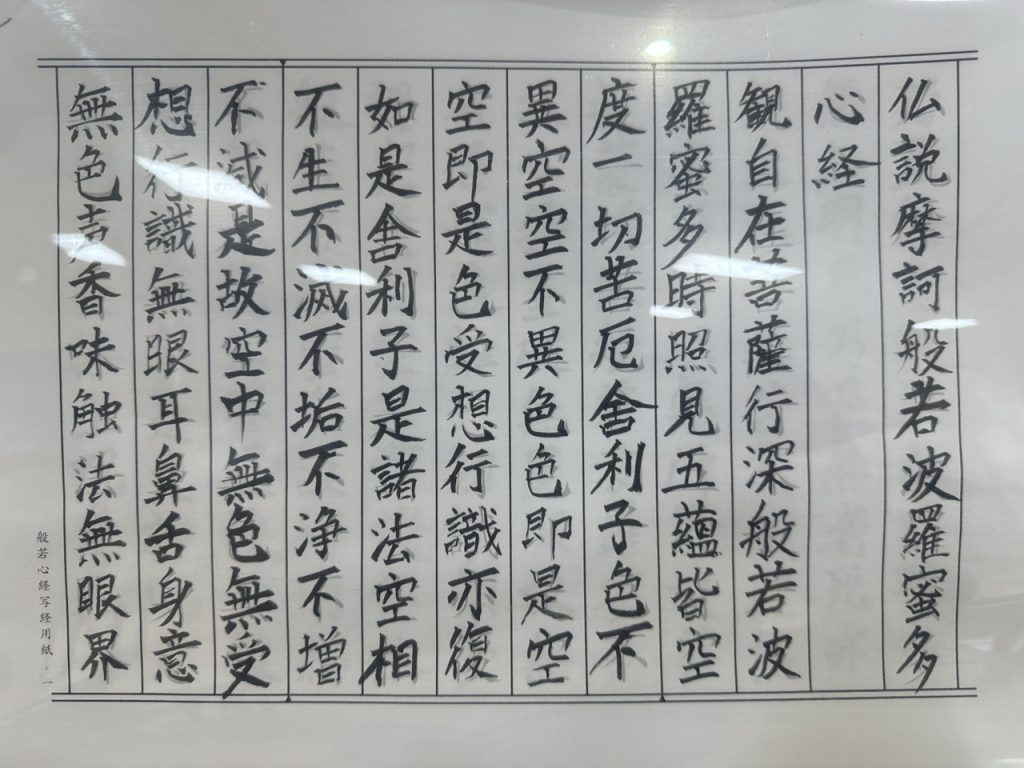 仏説摩訶般若波羅蜜多
心経
観自在菩薩行深般若波
羅蜜多時照見五蘊皆空
度一切苦厄舎利子色不
異空空不異色色即是空
空即是色受想行識亦復
如是舎利子是諸法空相
不生不滅不垢不浄不増
不減是故空中無色無受
想行識無眼耳鼻舌身意
無色声香味触法無眼界
般若心経写経用紙・一